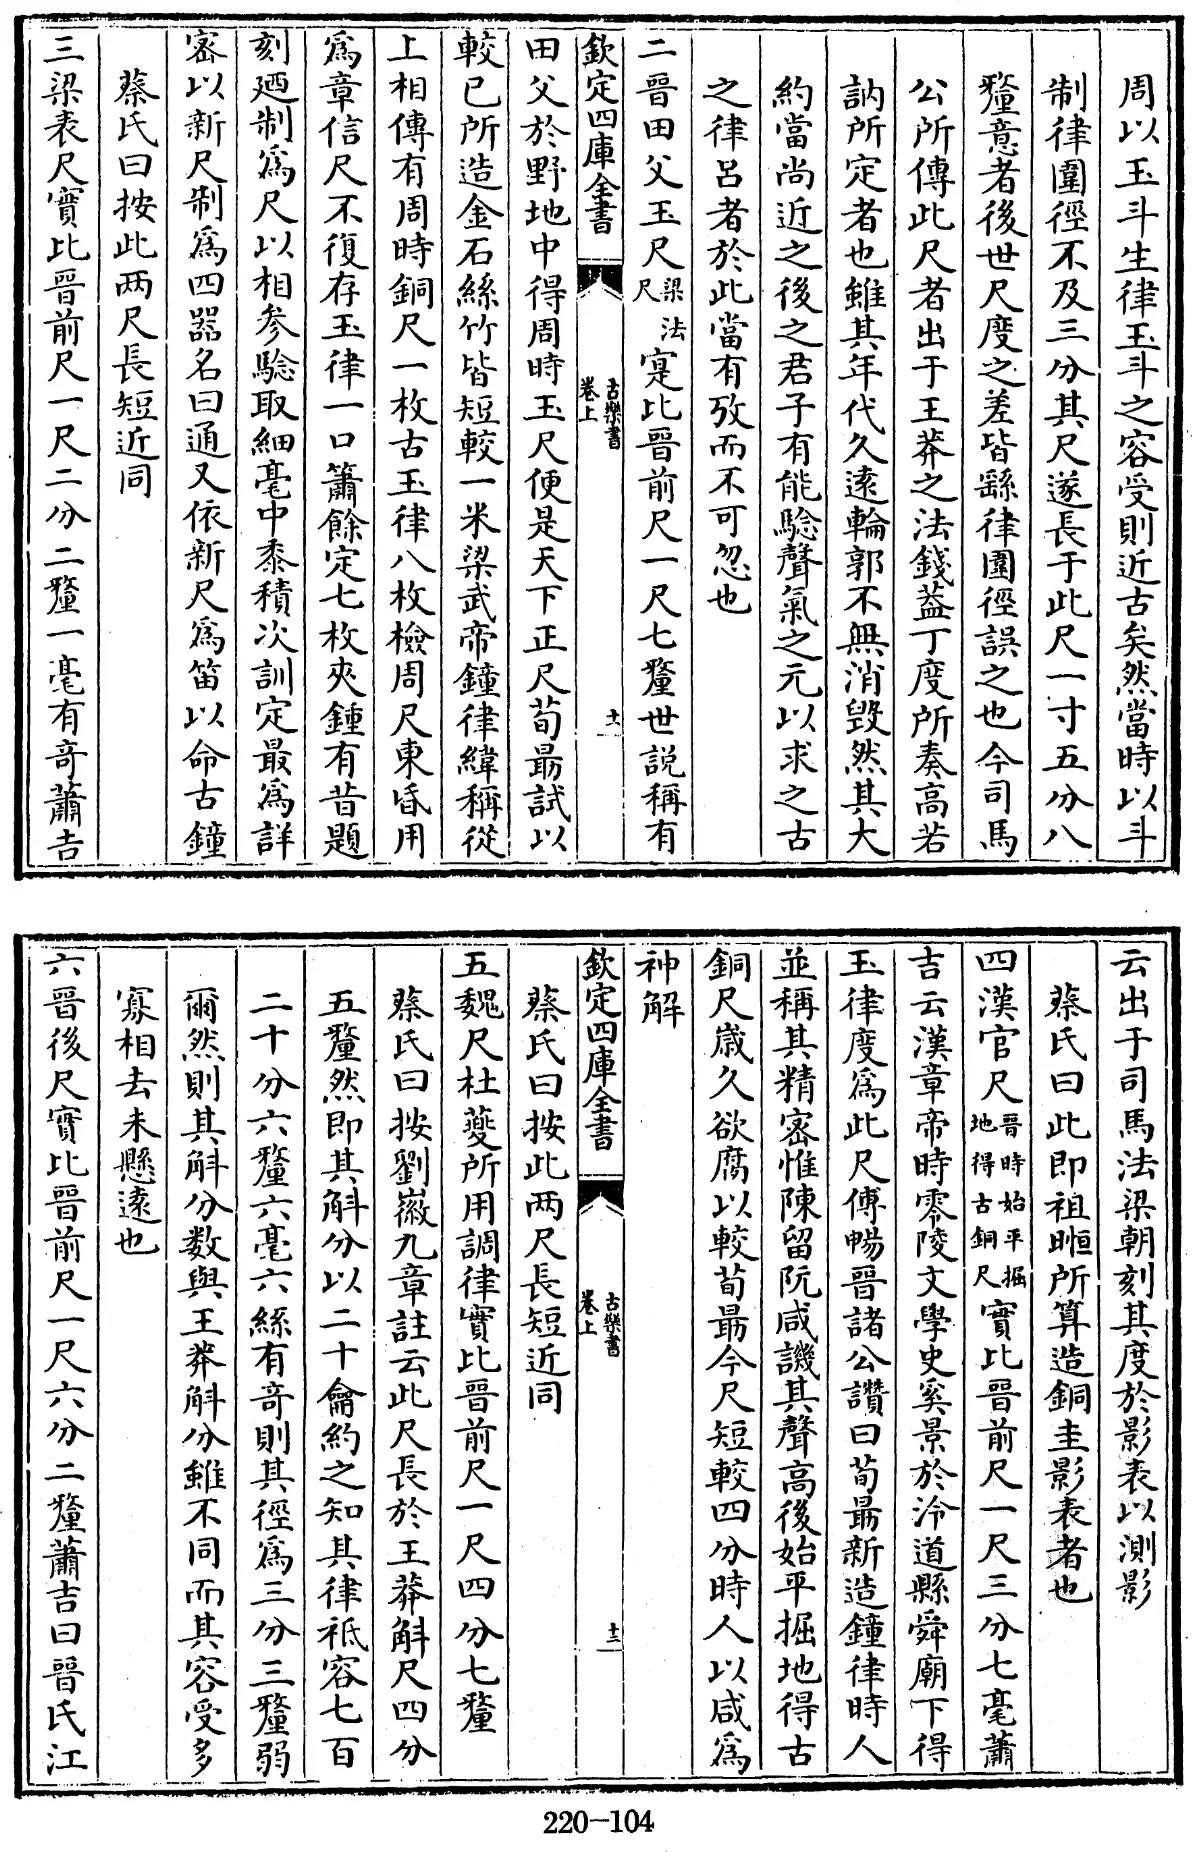 周以玉斗生律玉斗之容受則近古矣然當時以斗
制律圍徑不及三分其尺遂長于此尺一寸五分八
釐意者後世尺度之差皆繇律圍徑誤之也今司馬
公所傳此尺者出于王莽之法錢葢丁度所奏高若
訥所定者也雖其年代久遠輪郭不無消毀然其大
約當尚近之後之君子有能騐聲氣之元以求之古
之律呂者於此當有攷而不可忽也
二晉田父玉尺梁法尺寔比晉前尺一尺七釐世説稱有
欽定四庫全書
古樂書
卷上
十一
田父於野地中得周時玉尺便是天下正尺荀勗試以
較已所造金石絲竹皆短較一米梁武帝鐘律緯稱從
上相傳有周時銅尺一枚古玉律八枚檢周尺東昏用
爲章信尺不復存玉律一口簫餘定七枚夾鍾有昔題
刻廼制爲尺以相參騐取細毫中黍積次訓定最爲詳
宻以新尺制爲四器名曰通又依新尺爲笛以命古鐘
蔡氏曰按此两尺長短近同
三梁表尺實比晉前尺一尺二分二釐一毫有奇蕭吉
云出于司馬法梁朝刻其度於影表以測影
蔡氏曰此即祖暅所算造銅圭影表者也
四漢官尺晉時始平掘地得古銅尺實比晉前尺一尺三分七毫蕭
吉云漢章帝時零陵文學史奚景於泠道縣舜廟下得
玉律度爲此尺傅暢晉諸公讚曰荀勗新造鐘律時人
並稱其精宻惟陳留阮咸譏其聲高後始平掘地得古
銅尺歲久欲腐以較荀勗今尺短較四分時人以咸爲
神解
欽定四庫全書
古樂書
卷上
十二
蔡氏曰按此两尺長短近同
五魏尺杜夔所用調律實比晉前尺一尺四分七釐
蔡氏曰按劉徽九章註云此尺長於王莽斛尺四分
五釐然即其斛分以二十龠約之知其律袛容七百
二十分六釐六毫六絲有奇則其徑爲三分三釐弱
爾然則其斛分数與王莽斛分雖不同而其容受多
寡相去未懸遠也
六晉後尺實比晉前尺一尺六分二釐蕭吉曰晉氏江
220-104